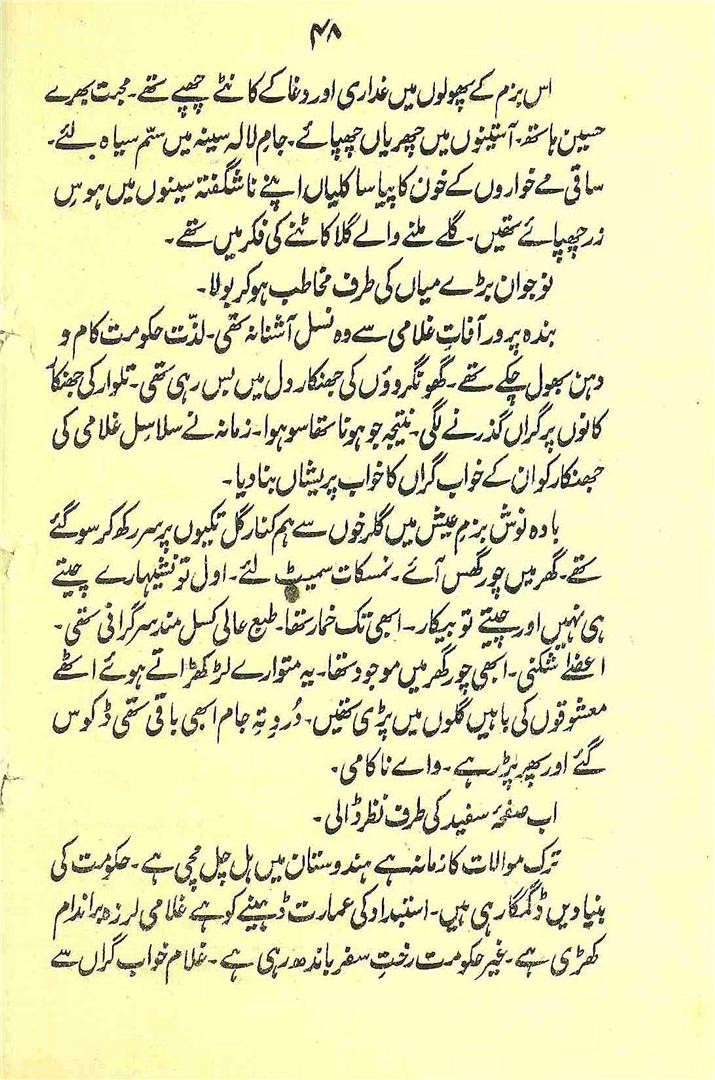 ۴۸
اس بزم کے پھولوں میں غداری اور دغا کے کانٹے چھپے تھے۔ محبت بھرے
حسین ہاتھ۔ آستینوں میں چھریاں چھپائے۔ جامِ لالہ سینہ میں سَمِّ سیاہ لئے۔
ساقی مے خواروں کے خون کا پیاسا کلیاں اپنے ناشگفتہ سینوں میں ہوسِ
زر چھپائے تھیں۔ گلے ملنے والے گلا کاٹنے کی فکر میں تھے۔
نوجوان بڑے میاں کی طرف مخاطب ہوکر بولا۔
بندہ پرور آفاتِ غلامی سے وہ نسل آشنا نہ تھی۔ لذّت حکومت کام و
دہن بھول چکے تھے۔ گھونگروؤں کی جھنکار دل میں بس رہی تھی۔ تلوار کی جھنکار
کانوں پر گراں گذرنے لگی۔ نتیجہ جو ہونا تھا سو ہوا۔ زمانہ نے سلاسل غلامی کی
جھنکار کو ان کے خواب گراں کا خواب پریشاں بنا دیا۔
بادہ نوش بزم عیش میں گلرخوں سے ہم کنار گل تکیوں پر سر رکھ کر سو گئے
تھے۔ گھر میں چور گھس آئے۔ تمسکات سمیٹ لئے۔ اول تو نشیہارے چیتے
ہی نہیں اور چیتے تو بیکار۔ ابھی تک خمار تھا۔ طبع عالی کسل مند سر گرانی تھی۔
اعضا شکنی۔ ابھی چور گھر میں موجود تھا۔ یہ متوارے لڑکھڑاتے ہوئے اٹھے
معشوقوں کی باہیں گلوں میں پڑی تھیں۔ دُردِ تہِ جام ابھی باقی تھی ڈکوس
گئے اور پھر پڑ رہے۔ وائے ناکامی۔
اب صفحۂ سفید کی طرف نظر ڈالی۔
ترک موالات کا زمانہ ہے ہندوستان میں ہل چل مچی ہے۔ حکومت کی
بنیادیں ڈگمگا رہی ہیں۔ استبداد کی عمارت ڈہینے کو ہے غلامی لرزہ بر اندام
کھڑی ہے۔ غیر حکومت رختِ سفر باندھ رہی ہے۔ غلام خوابِ گراں سے